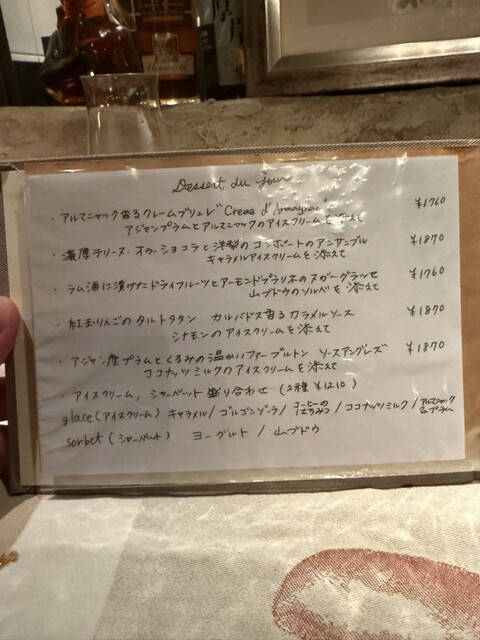 Dessert du jour
・アルマニャック香るクレームブリュレ "Creme d'Armagnac" ¥1760
アジャンプラムとアルマニャックのアイスクリームを添えて
・濃厚テリーヌ・オウ・ショコラと洋梨のコンポートのアンサンブル ¥1870
キャラメルアイスクリームを添えて
・ラム酒に漬けたドライフルーツとアーモンドプラリネのヌガーグラッセ ¥1760
山ブドウのソルベを添えて
・紅玉りんごのタルトタタン カルバドス香るカラメルソース ¥1870
シナモンのアイスクリームを添えて
・アジャン産プラムとくるみの温かいファーブルトン ソースアングレーズ ¥1870
ココナッツミルクのアイスクリームを添えて
・アイスクリーム, シャーベット盛り合わせ (2種 ¥1210)
glace (アイスクリーム) キャラメル / ゴルゴンゾーラ / コーヒーのはちみつ / ココナッツミルク / アルマニャック プラム
sorbet (シャーベット) ヨーグルト / 山ブドウ